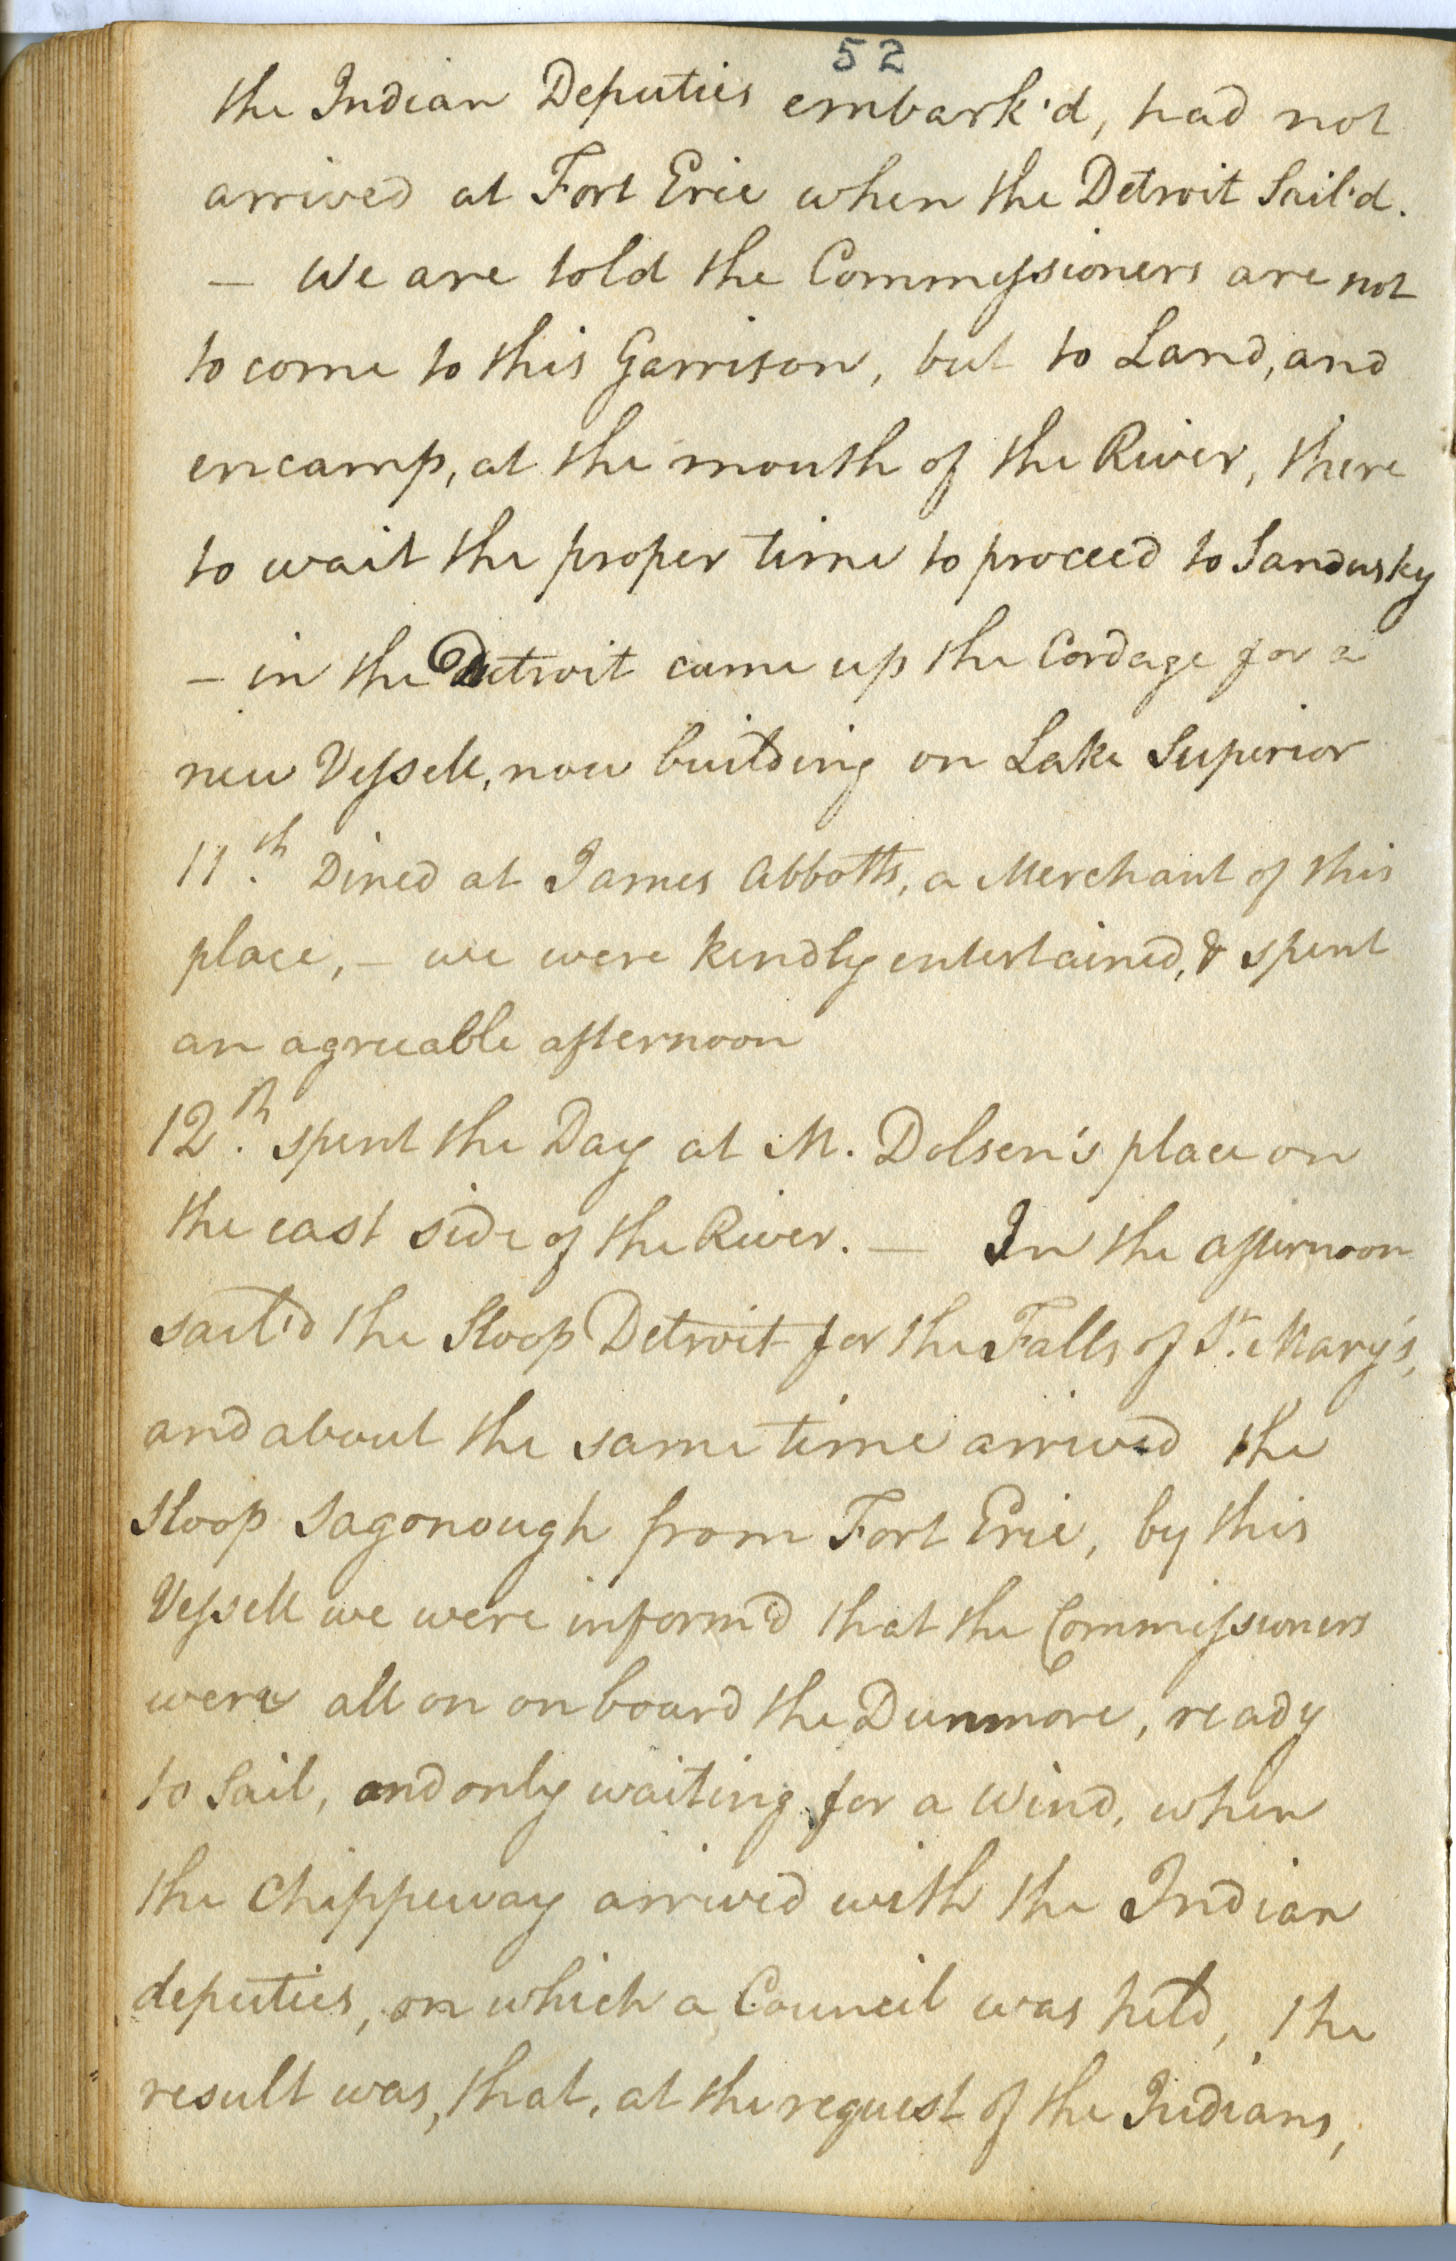 52
the Indian Deputies embark'd, had not
arrived at Fort Erie when the Detroit Sail'd.
— We are told the Commissioners are not
to come to this Garrison, but to Land, and
encamp, at the mouth of the River, there
to wait the proper time to proceed to Sandusky
— in the Detroit came up the Cordage for a
new Vessell, now building on Lake Superior
11th. Dined at James Abbotts, a Merchant of this
place, — we were kindly entertained, & spent
an agreeable afternoon
12th. spent the Day at M. Dolsen's place on
the east side of the River. — In the afternoon
sail'd the Sloop Detroit for the Falls of St. Mary's,
and about the same time arrived the
Sloop Sagonough from Fort Erie, by this
Vessell we were inform'd that the Commissioners
were all on on board the Dunmore, ready
to Sail, and only waiting for a Wind, when
the Chippeway arrived with the Indian
deputies, on which a Council was held, the
result was, that, at the request of the Indians,